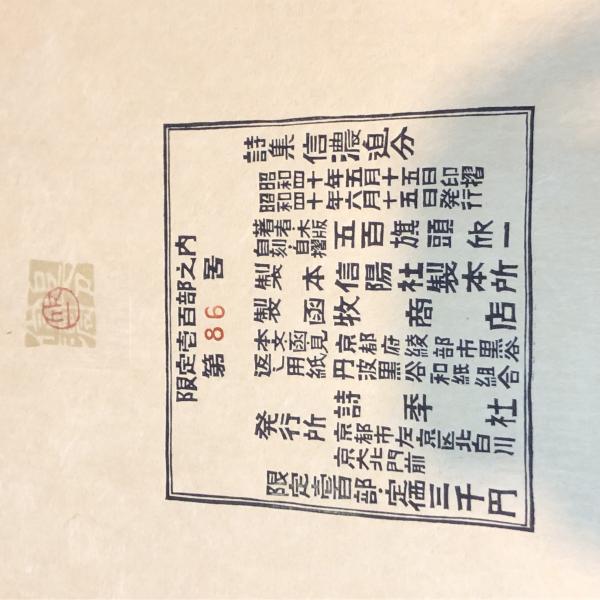 限定壱百部之内
第86号
詩集 信濃追分
昭和四十年五月十五日印摺
昭和四十年六月十五日発行
著者・木版
自刻・自摺
五百旗頭欣一
製本 信陽社製本所
製函 牧商店
本文・函・見
返し用紙
丹波黒谷和紙組合
京都府綾部市黒谷
発行所 詩季社
京都市左京区北白川
京大北門前
限定壱百部・定価三千円